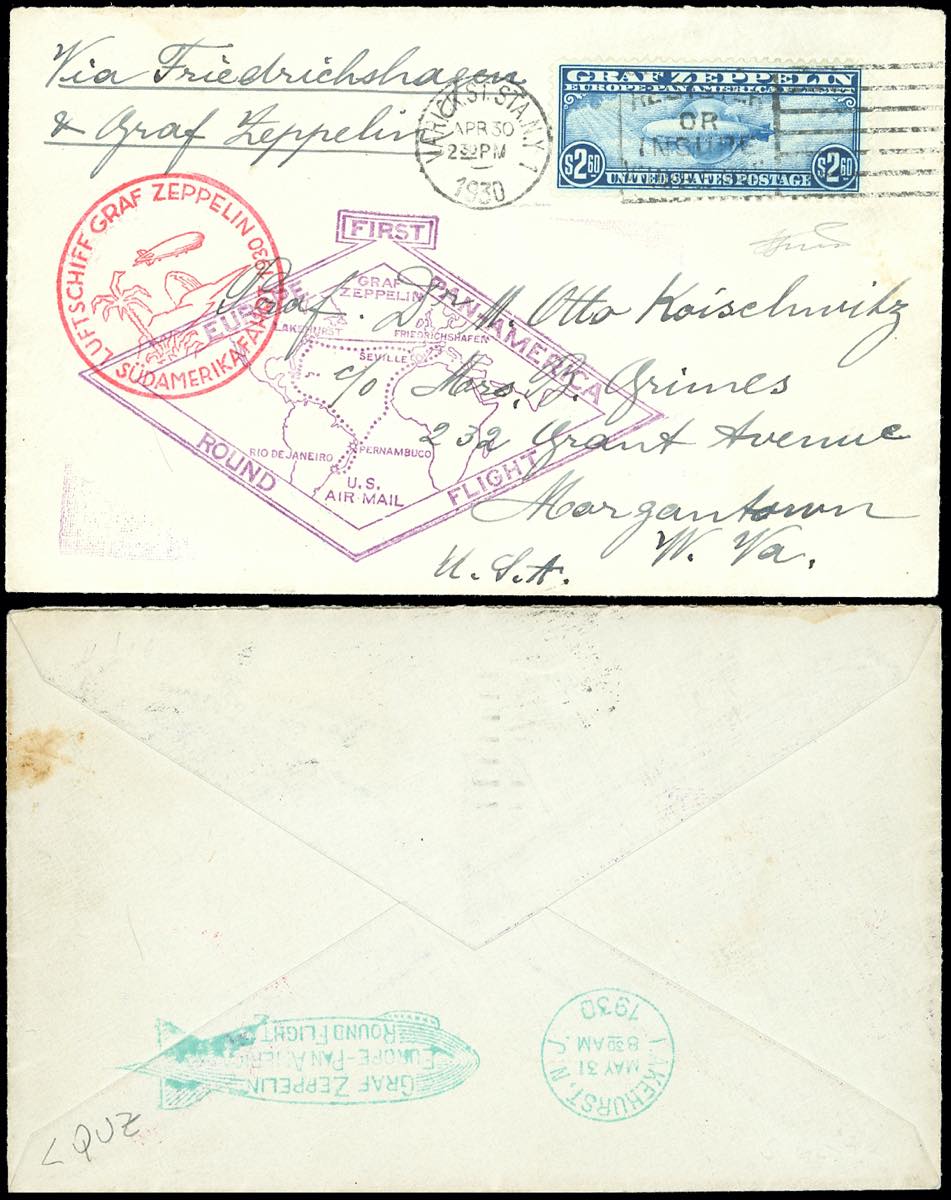 Via Friedrichshagen
& Graf Zeppelin
VARICK ST. STA. N.Y. 1
APR 30
2 30 PM
1930
GRAF ZEPPELIN
EUROPE-PAN AMERICA FLIGHT
REGISTER
OR
INSURE
$2 60
UNITED STATES POSTAGE
$2 60
LUFTSCHIFF GRAF ZEPPELIN 1930
SÜDAMERIKAFAHRT
FIRST
EUROPE
PAN-AMERICA
ROUND
FLIGHT
GRAF
ZEPPELIN
LAKEHURST
FRIEDRICHSHAFEN
SEVILLE
RIO DE JANEIRO
PERNAMBUCO
U.S.
AIR MAIL
Prof. Dr. M. Otto Koischwitz
c/o Mrs. L. Grimes
232 Grant Avenue
Morgantown
W. Va.
U.S.A.
GRAF ZEPPELIN
EUROPE-PAN AMERICA
ROUND FLIGHT
LAKEHURST, N.J.
MAY 31
8 30 AM
1930